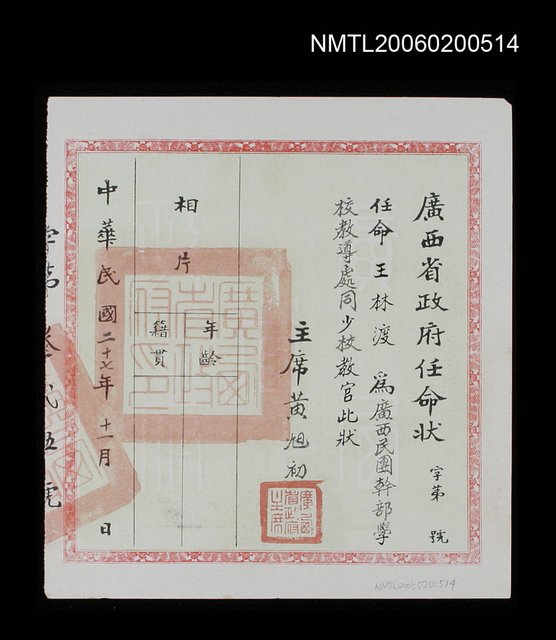 NMTL20060200514
廣西省政府任命狀
字第 號
任命王林渡 為廣西民團幹部學
校教導處同少校教官此狀
主席黃旭初
廣西省政府主席
年齡
籍貫
相片
廣西省政府印
中華民國二十七年 十一月 日
字第叁 弍伍號
NMTL20060200514